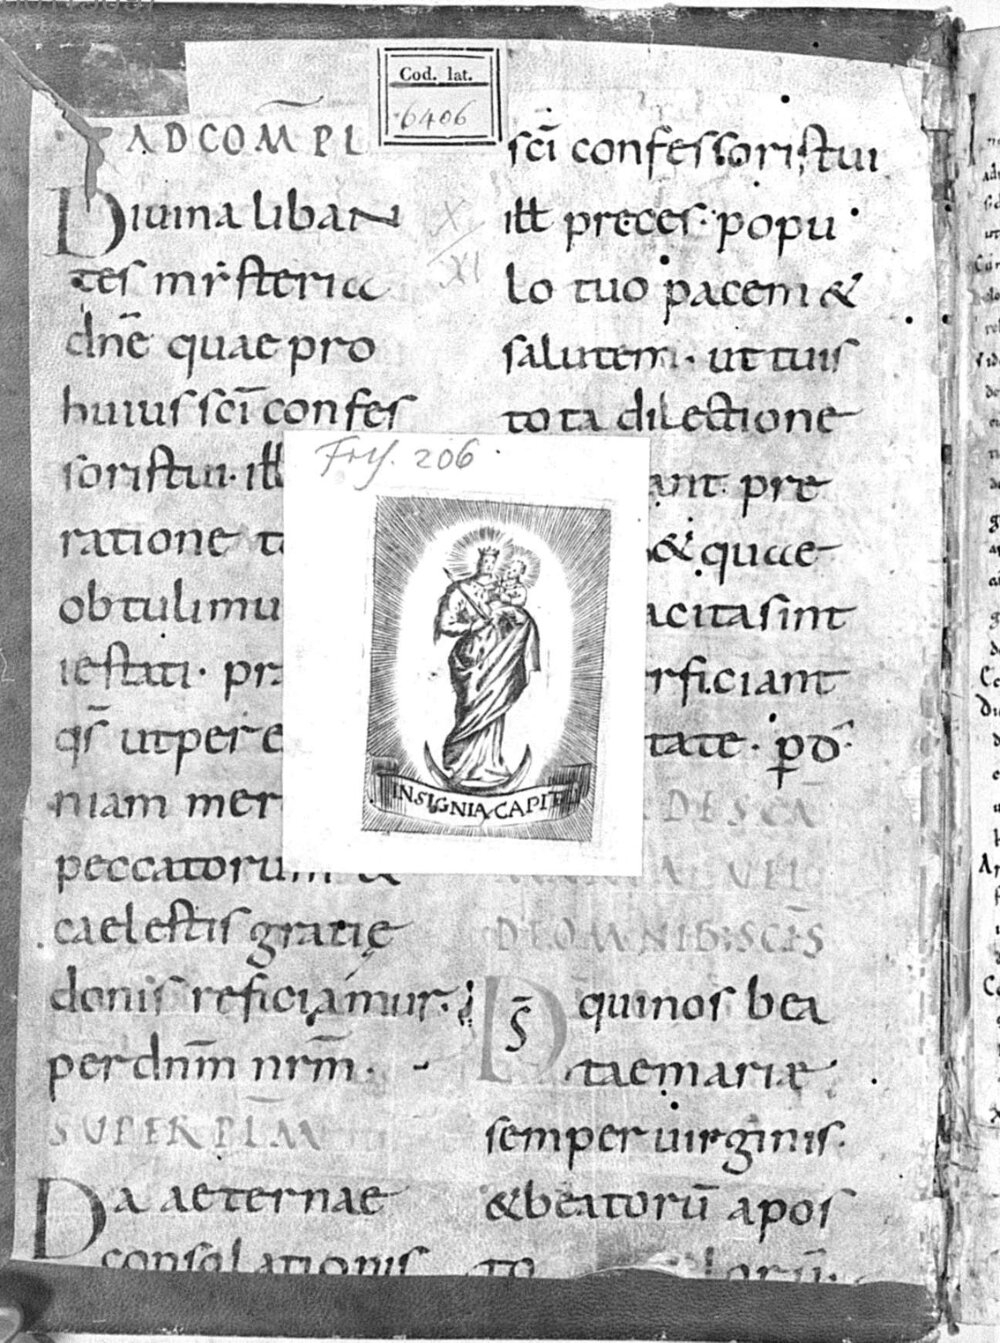 Cod. lat.
6406
AD COM̅ PL
Diuina liban
tes mẏsteria
dn̅e quae pro
huius sc̅i confes
soris tui. ill
ratione
obtulimu
iestati. pr
qs̅ ut per e
niam mer
peccatoru
caelestis gratię
donis reficiamur.
per dn̅m nr̅m.
SUPER PL̅M
Da aeternae
consolationis
X
XI
sc̅i confessoris tui
ill preces. popu
lo tuo pacem &
salutem. ut tuis
tota dilectione
ant pre
& quae
acita sint
rficiant
tate. p̱ d̅.
DE SC̅A
DI OMNIB; SC̅IS
D s̅ qui nos bea
tae mariæ
semper uirginis.
& beatoru̅ apos
to loru̅.
Fris. 206
INSIGNIA CAPIT